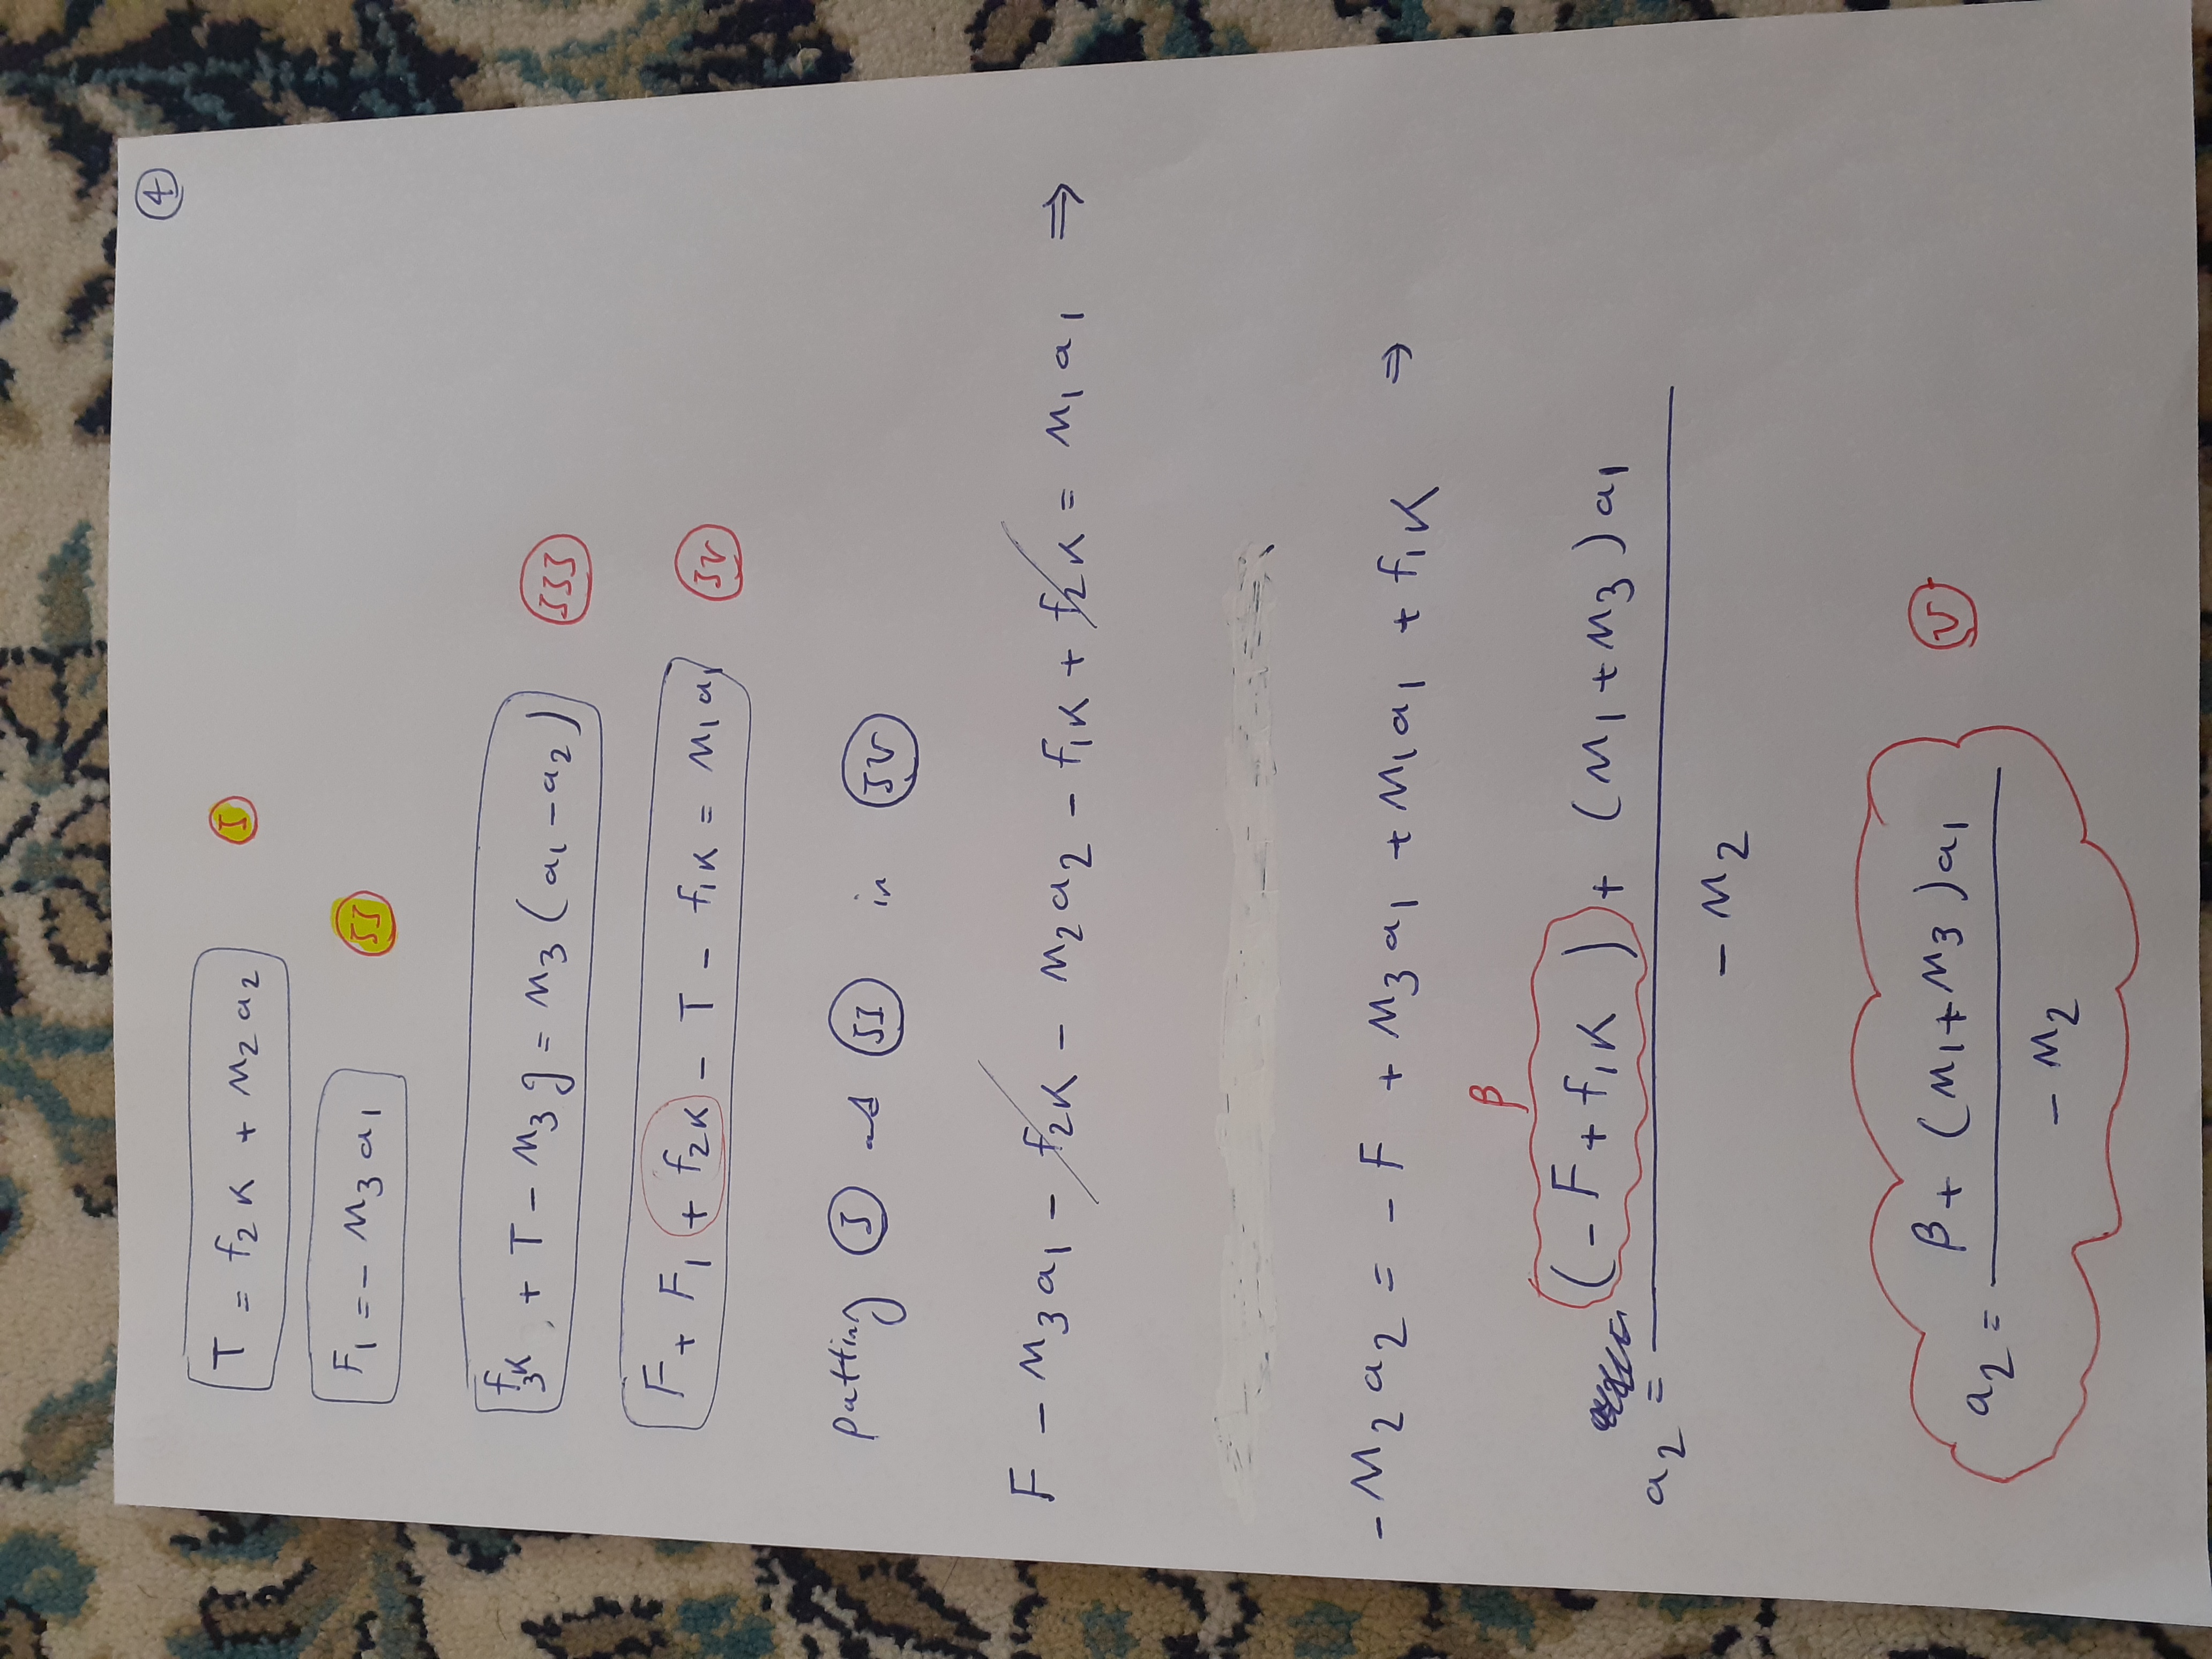 4
T = f2K + M2 a2 I
F1 = - M3 a1 II
f3K + T - M3 g = M3 ( a1 - a2 ) III
F + F1 + f2K - T - f1K = M1 a1 IV
putting I and II in IV
F - M3 a1 - f2K - M2 a2 - f1K + f2K = M1 a1 ⇒
- M2 a2 = - F + M3 a1 + M1 a1 + f1K ⇒
β
( - F + f1K ) + ( M1 + M3 ) a1
a2 =
- M2
β + ( M1 + M3 ) a1
a2 = V
- M2